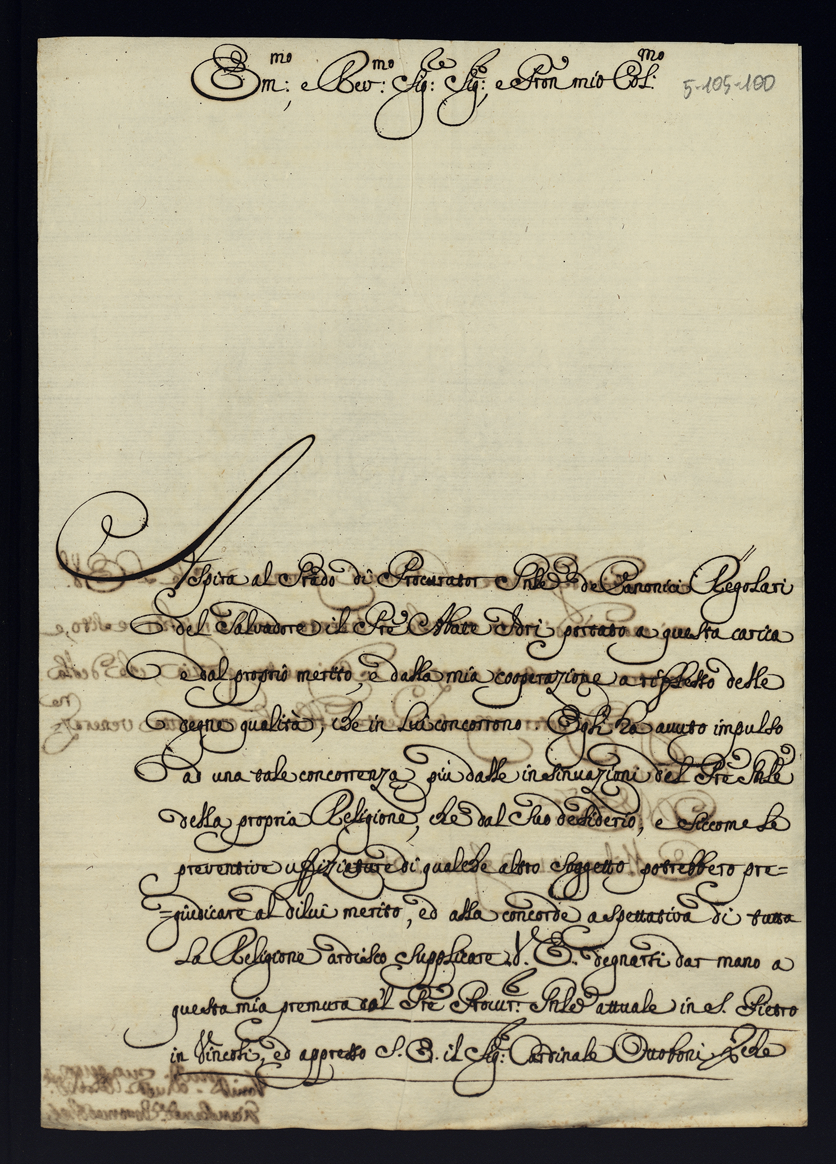 Em:mo e Rev:mo Sig:re Sig:re e Pron mio Col:mo
5-105-100
Aspira al Grado di Procurator Gnle de Canonici Regolari
del Salvadore il Pre Abate Adri portato a questa carica
e dal proprio merito, e dalla mia cooperazione a riflesso delle
degne qualità, che in Lui concorrono. Egli ha avuto impulso
ad una tale concorrenza più dalle insinuazioni del Pre Gnle
della propria Religione, che dal Suo desiderio, e siccome le
preventive uffiziature di qualche altro soggetto potrebbero pre=
=giudicare al dilui merito, ed alla concorde aspettativa di tutta
La Religione ardisco supplicare V. E. degnarsi dar mano a
questa mia premura col Pre Procur:e Gnle attuale in S. Pietro
in Vincoli, ed appresso S. E. il Sig:e Cardinale Ottoboni, che